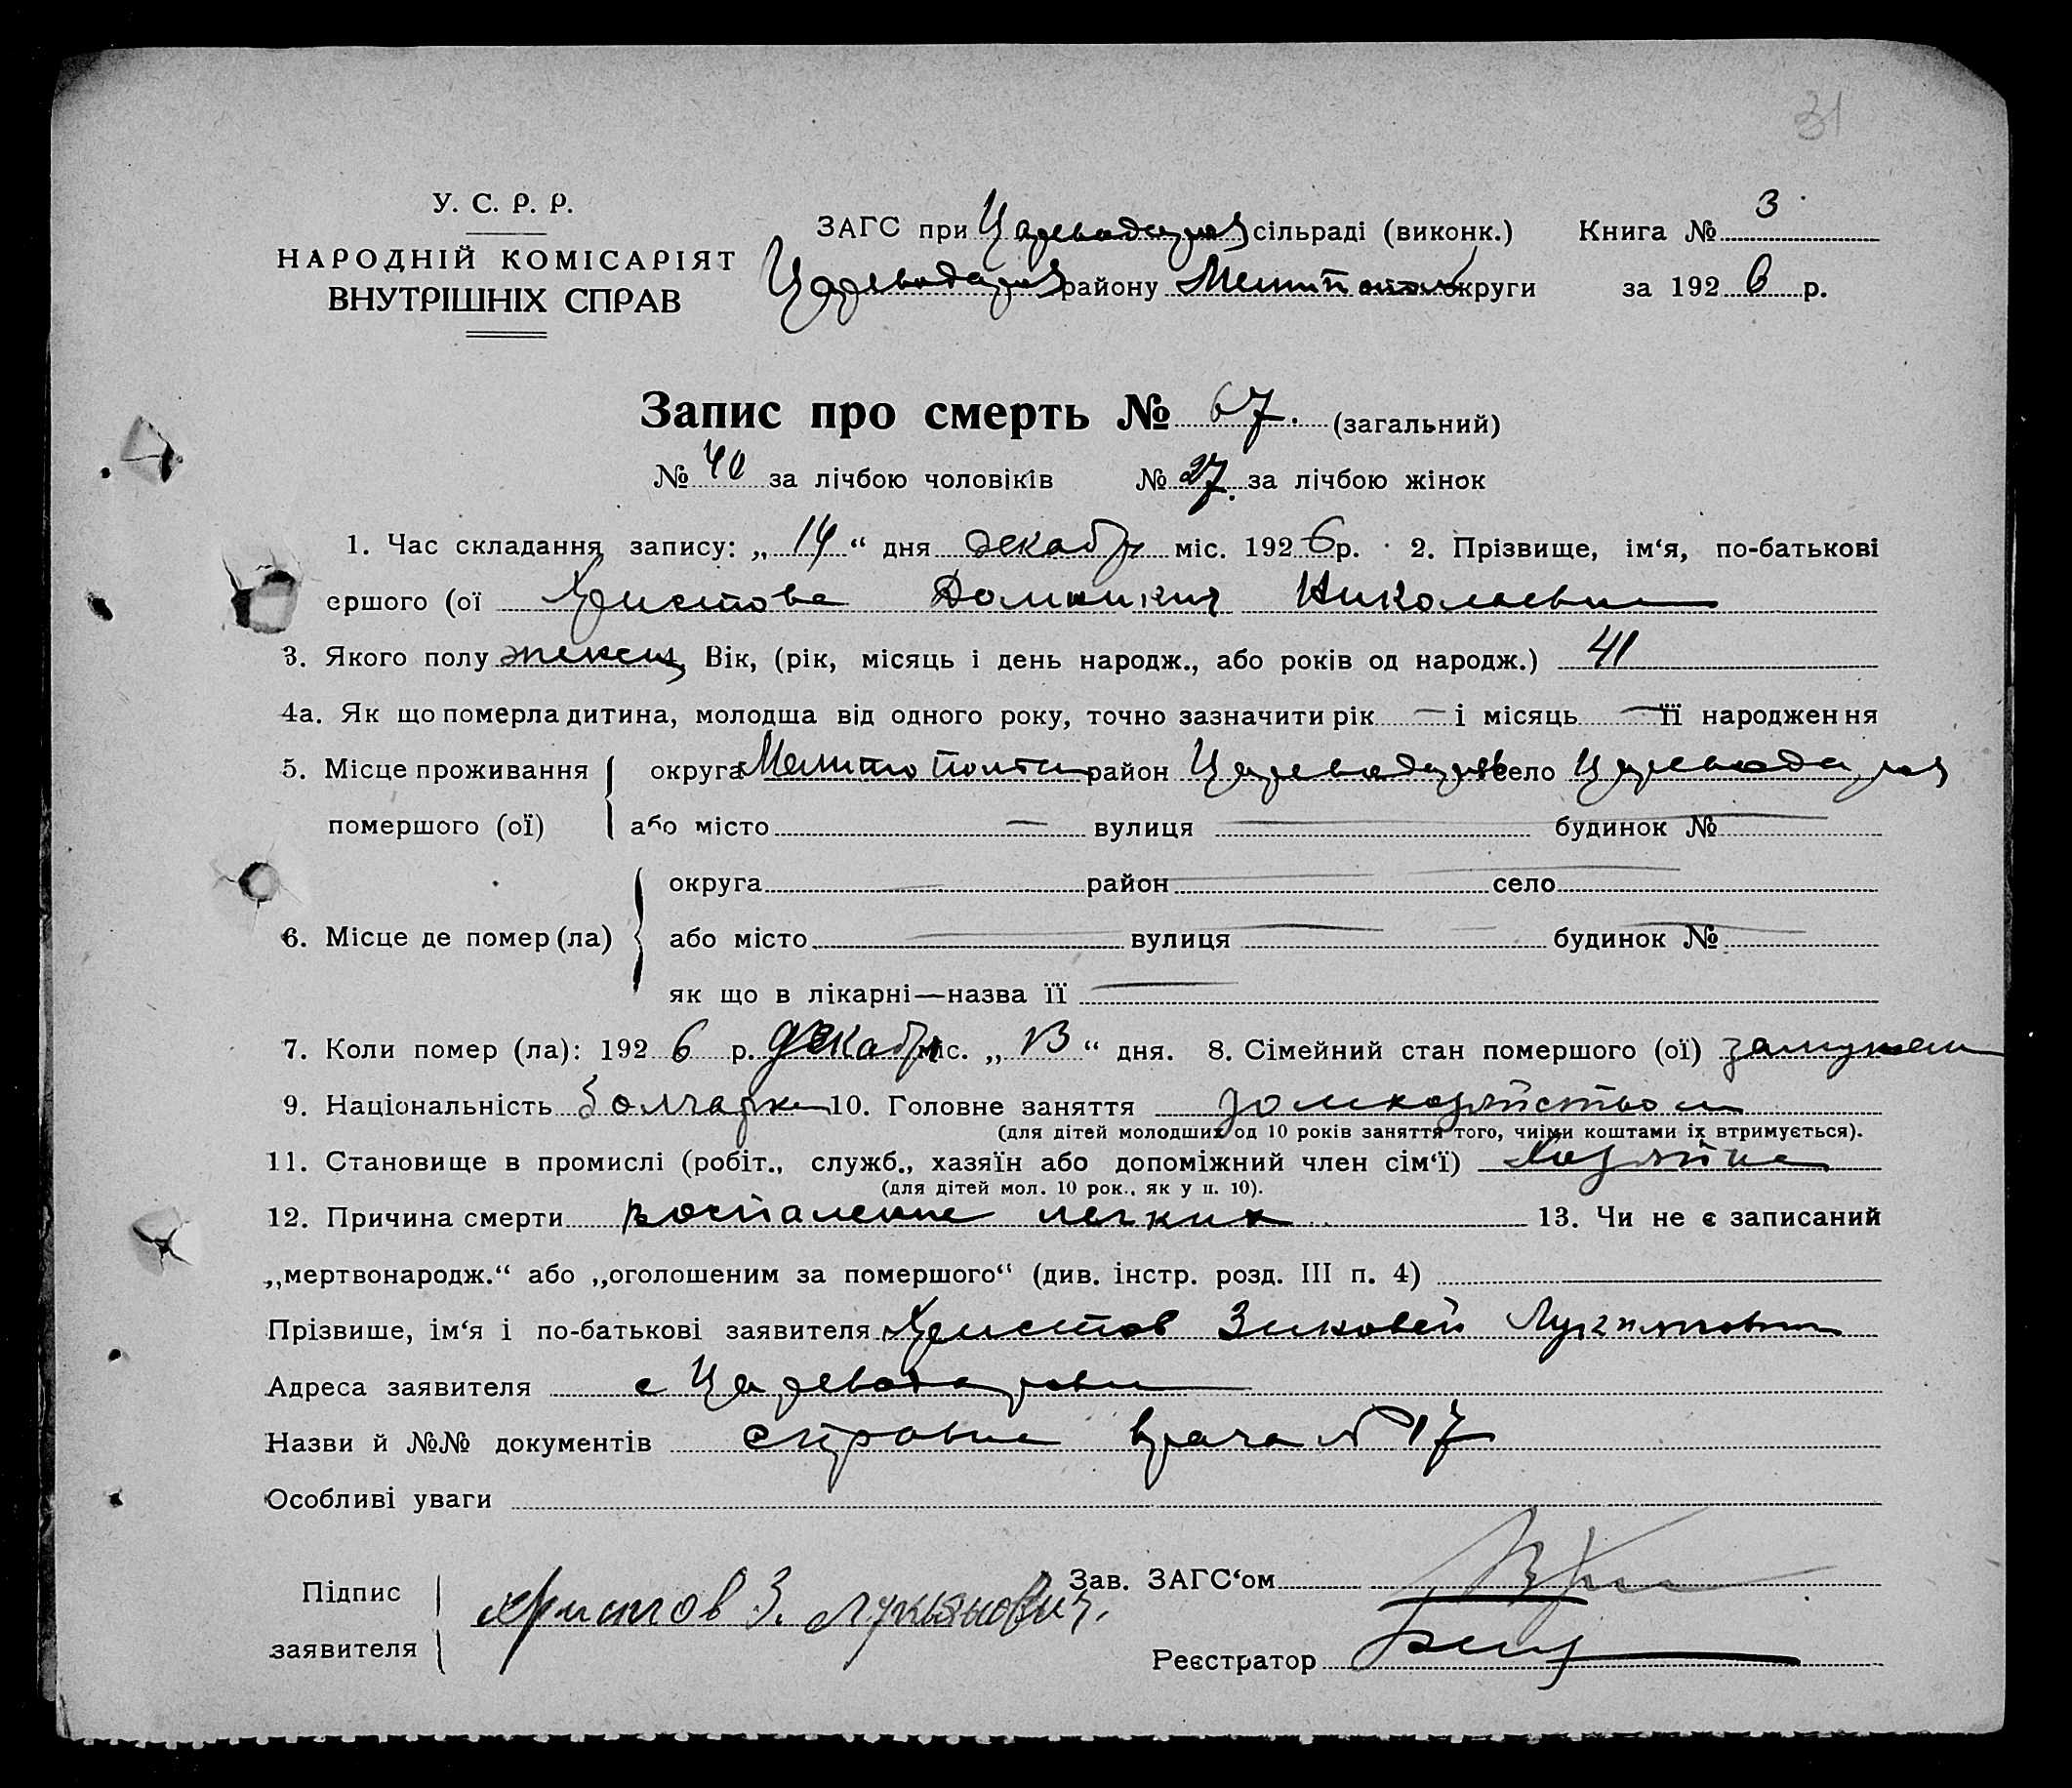 31
У. С. Р. Р.
НАРОДНІЙ КОМІСАРІЯТ
ВНУТРІШНІХ СПРАВ
ЗАГС при Цареводаров сільраді (виконк.) Книга № 3
Цареводаров району Мелитопол округи за 1926 р.
Запис про смерть № 67. (загальний)
№ 40 за лічбою чоловіків № 27. за лічбою жінок
1. Час складання запису: „14“ дня декабр міс. 1926 р. 2. Прізвище, ім‘я, по-батькові
єршого (ої Христова Домникия Николаевна
3. Якого полу женск Вік, (рік, місяць і день народж., або років од народж.) 41
4а. Як що померла дитина, молодша від одного року, точно зазначити рік — і місяць — її народження
5. Місце проживання округа Мелитополь район Цареводаров село Цареводаров
помершого (ої) або місто — вулиця — будинок № —
округа — район — село —
6. Місце де помер (ла) або місто — вулиця — будинок № —
як що в лікарні—назва її —
7. Коли помер (ла): 1926 р. декабр міс. „13“ дня. 8. Сімейний стан помершого (ої) замужем
9. Національність болгарка 10. Головне заняття домхозяйством
(для дітей молодших од 10 років заняття того, чиїми коштами іх втримується).
11. Становище в промислі (робіт., служб., хазяїн або допоміжний член сім‘ї) хозяйка
(для дітей мол. 10 рок., як у п. 10).
12. Причина смерти воспаление легких 13. Чи не є записаний
„мертвонародж.“ або „оголошеним за помершого“ (див. інстр. розд. III п. 4)
Прізвише, ім‘я і по-батькові заявителя Христов Зиновей Лукиянович
Адреса заявителя с Цареводаровка
Назви й №№ документів справка врача № 17
Особливі уваги
Підпис Зав. ЗАГС‘ом
Христов З. Лукьянович.
заявителя Реєстратор